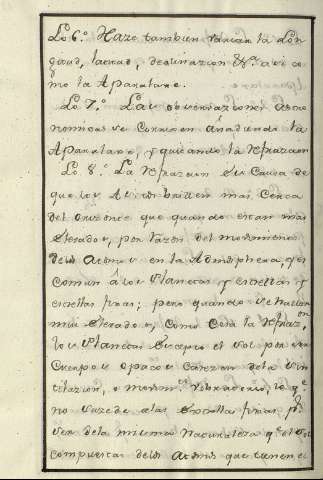 Lo 6.º Haze tambien variar la Lon
gitud, latitud, declinazion &.ª asi co
mo la Aparalaxe.
Lo 7.º Las observaziones Astro
nomicas se Corrijen añadiendo la
Aparalaxe, y quitando la Refrazion
Lo 8.º La Refrazion es Causa de
que los Astros brillen mas Cerca
del orizonte que quando estan mas
Elevados, por razon del movimiento
delos Atomos en la Admosphera, q.e es
Comun á los Planetas y estrellas
estrellas fixas; pero quando se hallan
mui Elevados, Como Cesa la Refraz.on
los Planetas Excepto el sol por ser
Cuerpos opacos Carezen dela
tilazion, o movim.to vibratorio, lo q.e
no suzede alas Estrellas fixas p.r
ser dela misma Naturaleza q.e el sol
compuestas delos Atomos que tienen el